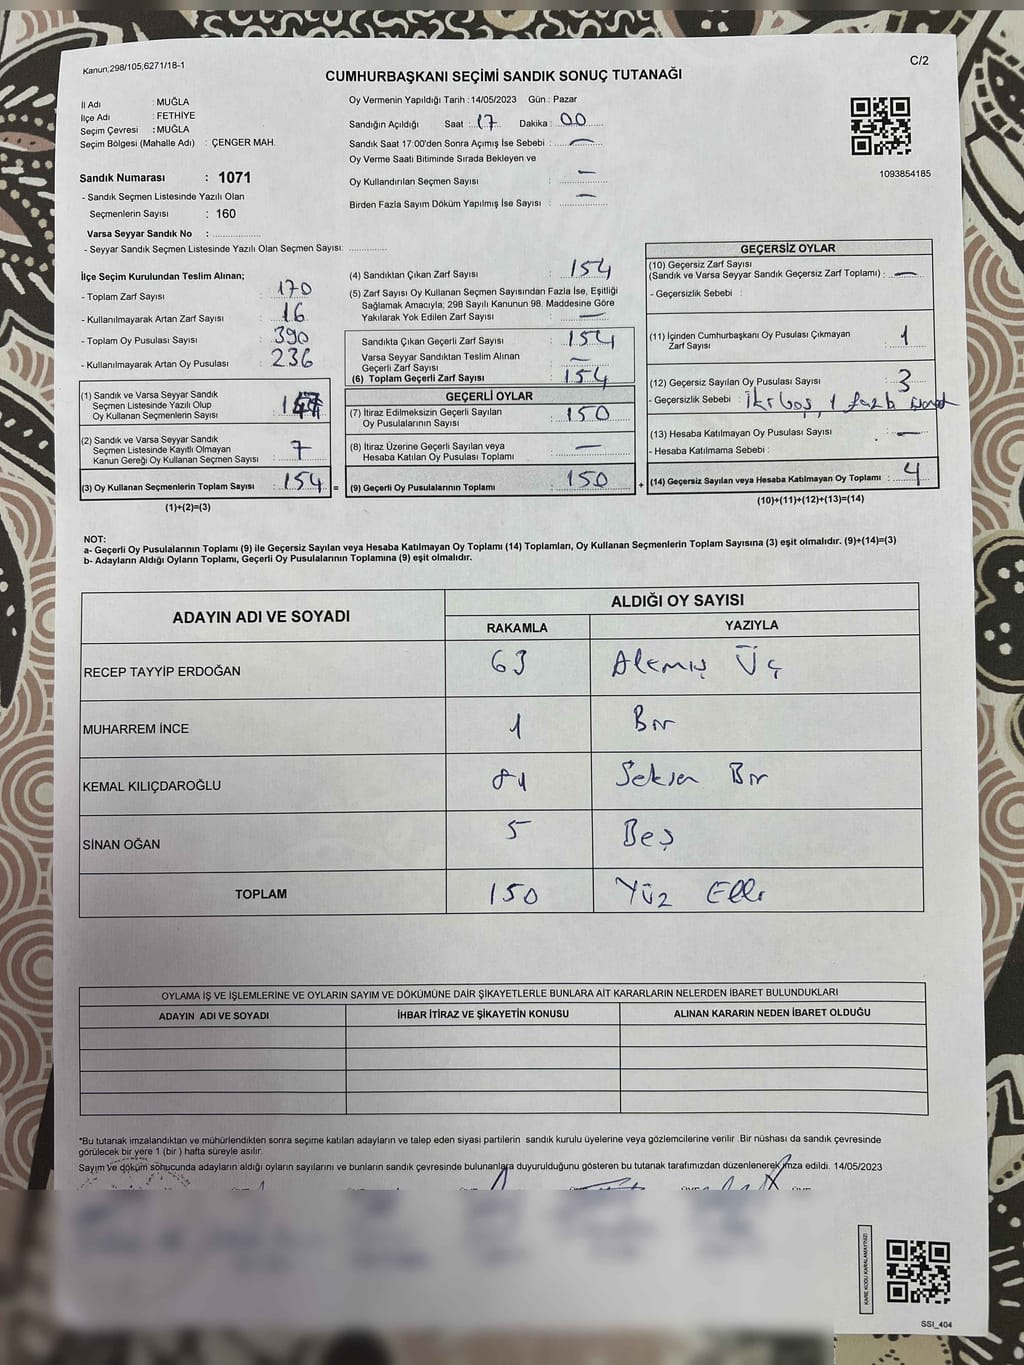 Kanun;298/105,6271/18-1
C/2
CUMHURBAŞKANI SEÇİMİ SANDIK SONUÇ TUTANAĞI
İl Adı : MUĞLA
İlçe Adı : FETHİYE
Seçim Çevresi : MUĞLA
Seçim Bölgesi (Mahalle Adı) : ÇENGER MAH.
Sandık Numarası : 1071
- Sandık Seçmen Listesinde Yazılı Olan
Seçmenlerin Sayısı : 160
Varsa Seyyar Sandık No :
- Seyyar Sandık Seçmen Listesinde Yazılı Olan Seçmen Sayısı:
Oy Vermenin Yapıldığı Tarih : 14/05/2023 Gün : Pazar
Sandığın Açıldığı Saat : 17 Dakika : 00
Sandık Saat 17:00'den Sonra Açımış İse Sebebi : —
Oy Verme Saati Bitiminde Sırada Bekleyen ve
Oy Kullandırılan Seçmen Sayısı : —
Birden Fazla Sayım Döküm Yapılmış İse Sayısı : —
1093854185
İlçe Seçim Kurulundan Teslim Alınan;
- Toplam Zarf Sayısı : 170
- Kullanılmayarak Artan Zarf Sayısı : 16
- Toplam Oy Pusulası Sayısı : 390
- Kullanılmayarak Artan Oy Pusulası : 236
(1) Sandık ve Varsa Seyyar Sandık
Seçmen Listesinde Yazılı Olup
Oy Kullanan Seçmenlerin Sayısı : 147
(2) Sandık ve Varsa Seyyar Sandık
Seçmen Listesinde Kayıtlı Olmayan
Kanun Gereği Oy Kullanan Seçmen Sayısı : 7
(3) Oy Kullanan Seçmenlerin Toplam Sayısı : 154 =
(1)+(2)=(3)
(4) Sandıktan Çıkan Zarf Sayısı : 154
(5) Zarf Sayısı Oy Kullanan Seçmen Sayısından Fazla İse, Eşitliği
Sağlamak Amacıyla; 298 Sayılı Kanunun 98. Maddesine Göre
Yakılarak Yok Edilen Zarf Sayısı : —
Sandıkta Çıkan Geçerli Zarf Sayısı : 154
Varsa Seyyar Sandıktan Teslim Alınan
Geçerli Zarf Sayısı : —
(6) Toplam Geçerli Zarf Sayısı : 154
GEÇERLİ OYLAR
(7) İtiraz Edilmeksizin Geçerli Sayılan
Oy Pusulalarının Sayısı : 150
(8) İtiraz Üzerine Geçerli Sayılan veya
Hesaba Katılan Oy Pusulası Toplamı : —
(9) Geçerli Oy Pusulalarının Toplamı : 150 +
GEÇERSİZ OYLAR
(10) Geçersiz Zarf Sayısı
(Sandık ve Varsa Seyyar Sandık Geçersiz Zarf Toplamı) : —
- Geçersizlik Sebebi :
(11) İçinden Cumhurbaşkanı Oy Pusulası Çıkmayan
Zarf Sayısı : 1
(12) Geçersiz Sayılan Oy Pusulası Sayısı : 3
- Geçersizlik Sebebi : İki boş, 1 fazla
(13) Hesaba Katılmayan Oy Pusulası Sayısı : —
- Hesaba Katılmama Sebebi :
(14) Geçersiz Sayılan veya Hesaba Katılmayan Oy Toplamı : 4
(10)+(11)+(12)+(13)=(14)
NOT:
a- Geçerli Oy Pusulalarının Toplamı (9) ile Geçersiz Sayılan veya Hesaba Katılmayan Oy Toplamı (14) Toplamları, Oy Kullanan Seçmenlerin Toplam Sayısına (3) eşit olmalıdır. (9)+(14)=(3)
b- Adayların Aldığı Oyların Toplamı, Geçerli Oy Pusulalarının Toplamına (9) eşit olmalıdır.
ADAYIN ADI VE SOYADI ALDIĞI OY SAYISI
RAKAMLA YAZIYLA
RECEP TAYYİP ERDOĞAN 63 Atemış Üç
MUHARREM İNCE 1 Bir
KEMAL KILIÇDAROĞLU 81 Seksen Bir
SİNAN OĞAN 5 Beş
TOPLAM 150 Yüz Elli
OYLAMA İŞ VE İŞLEMLERİNE VE OYLARIN SAYIM VE DÖKÜMÜNE DAİR ŞİKAYETLERLE BUNLARA AİT KARARLARIN NELERDEN İBARET BULUNDUKLARI
ADAYIN ADI VE SOYADI İHBAR İTİRAZ VE ŞİKAYETİN KONUSU ALINAN KARARIN NEDEN İBARET OLDUĞU
*Bu tutanak imzalandıktan ve mühürlendikten sonra seçime katılan adayların ve talep eden siyasi partilerin sandık kurulu üyelerine veya gözlemcilerine verilir .Bir nüshası da sandık çevresinde
görülecek bir yere 1 (bir ) hafta süreyle asılır.
Sayım ve döküm sonucunda adayların aldığı oyların sayılarını ve bunların sandık çevresinde bulunanlara duyurulduğunu gösteren bu tutanak tarafımızdan düzenlenerek imza edildi. 14/05/2023
KARE KODU KARALAMAYINIZ!
SSI_404